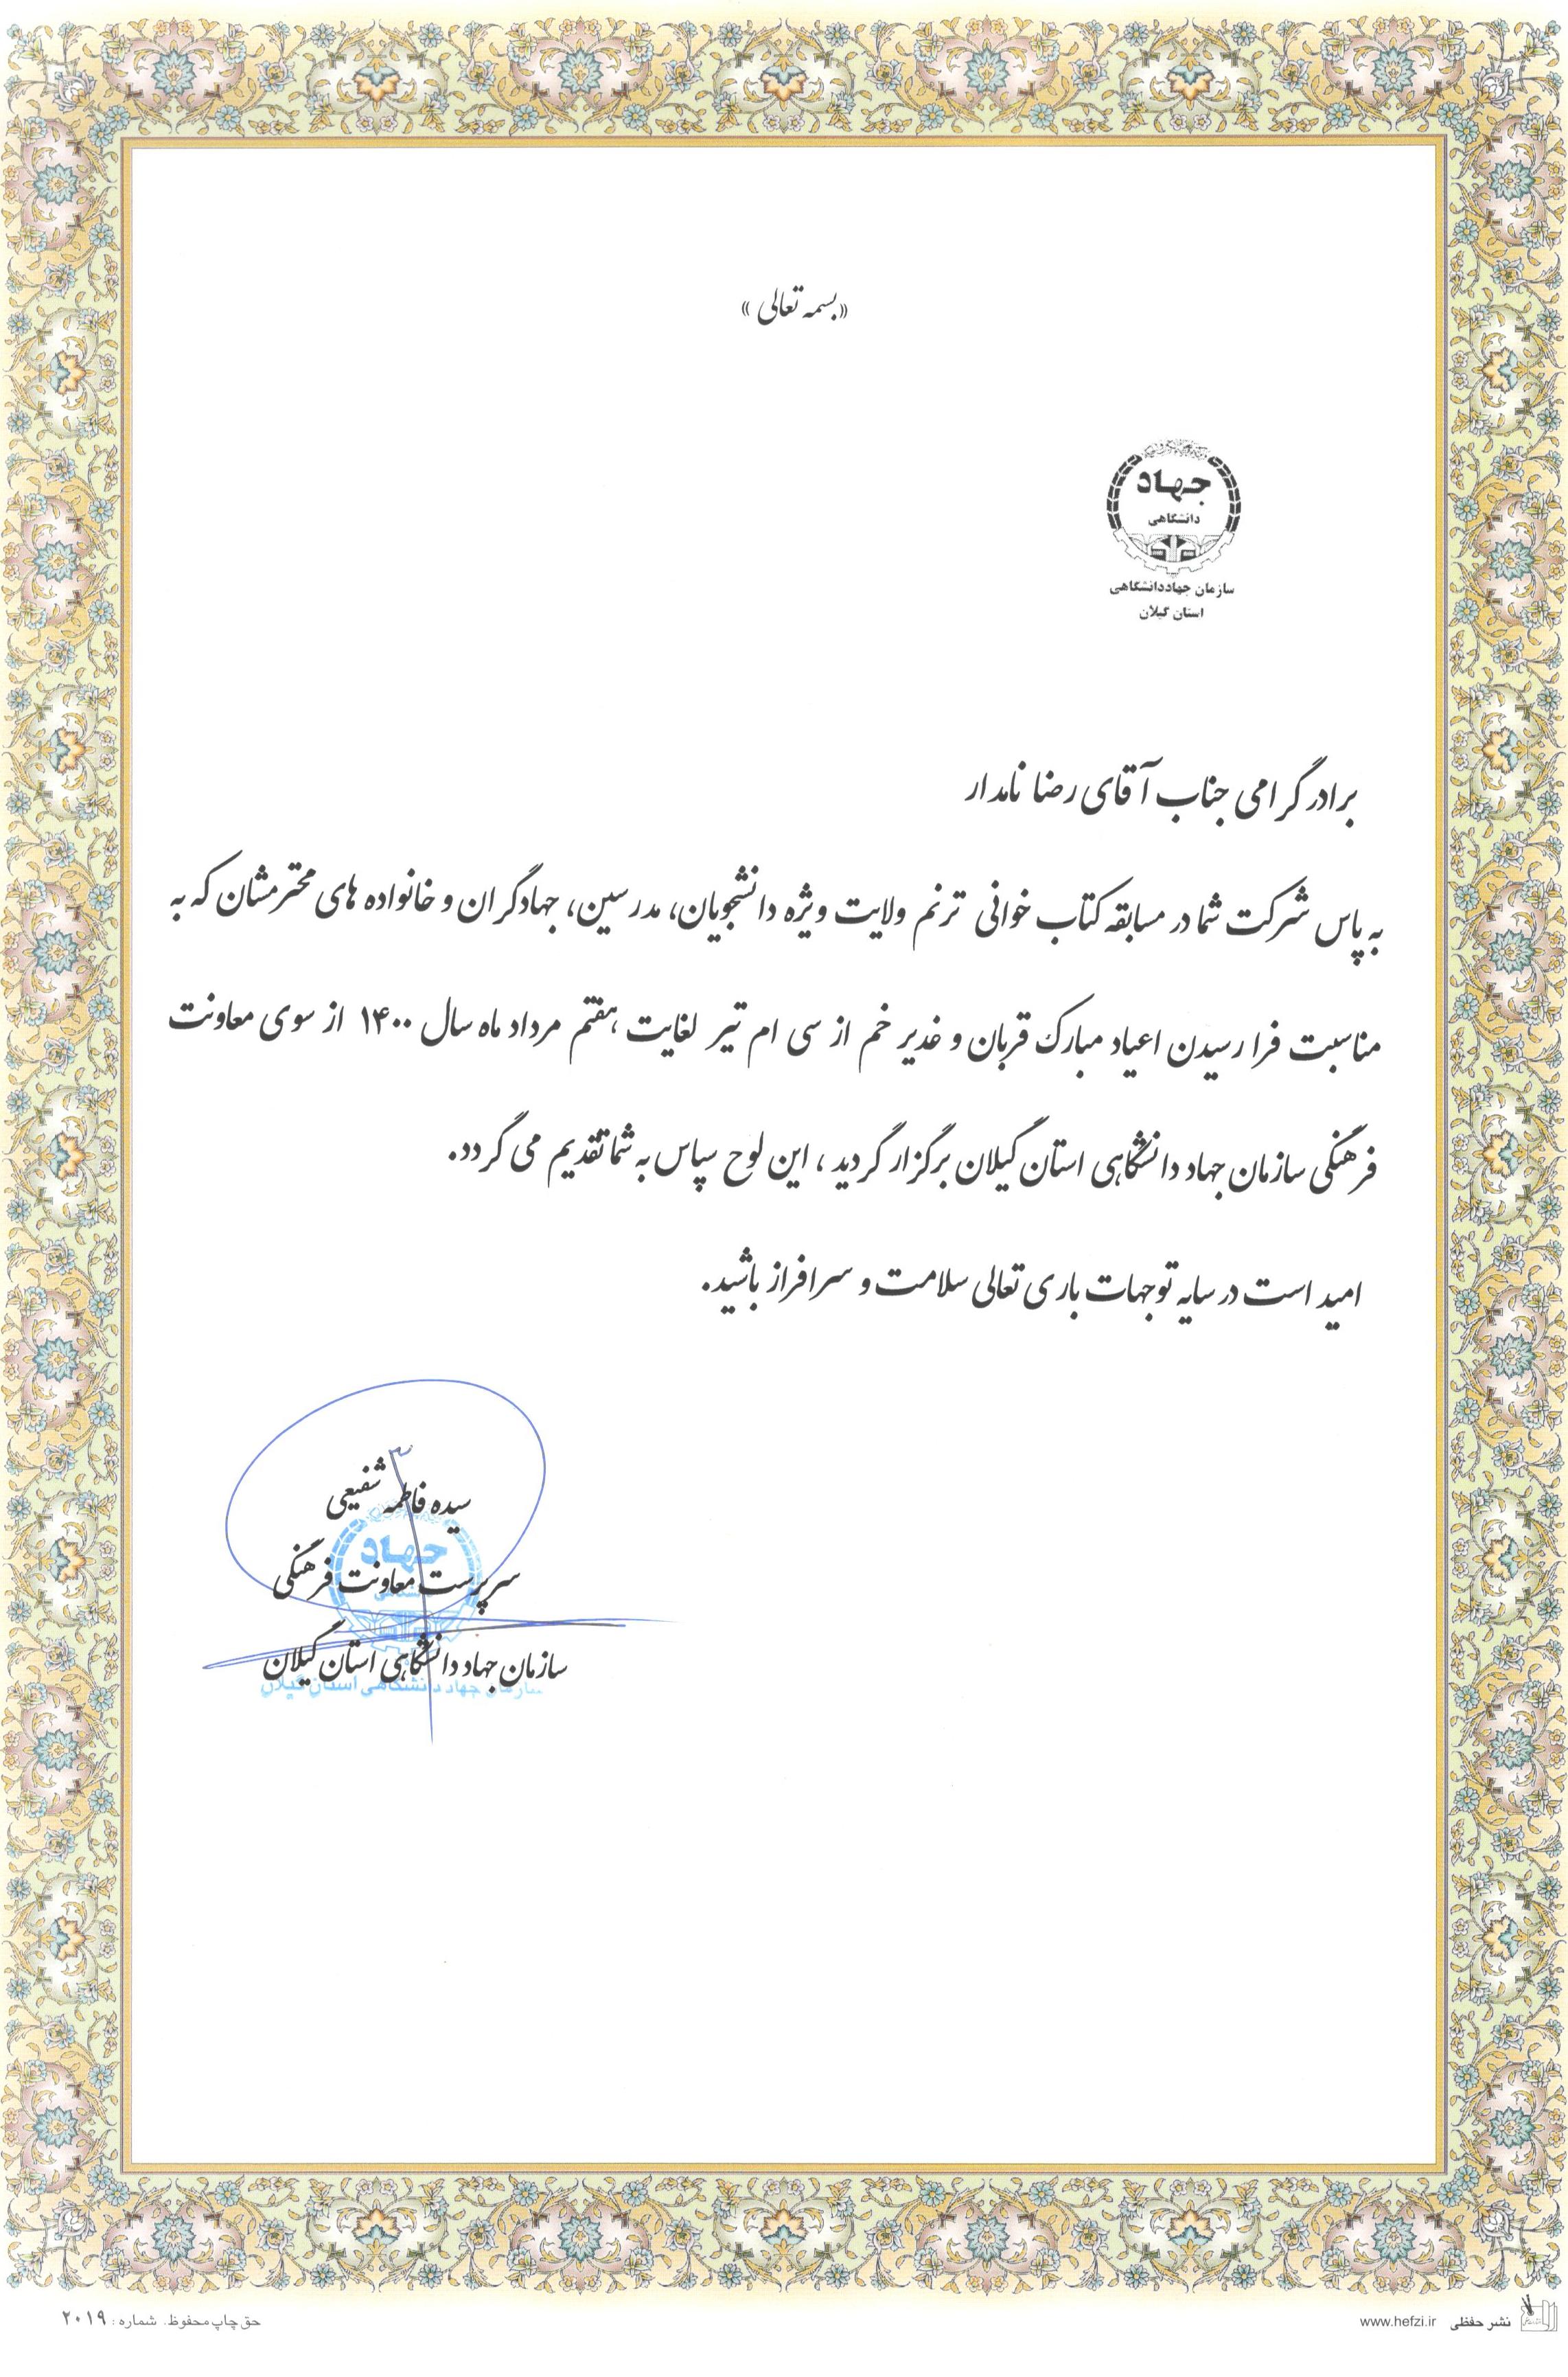 «بسمه تعالی»
جهاد
دانشگاهی
سازمان جهاددانشگاهی
استان گیلان
برادر گرامی جناب آقای رضا نامدار
به پاس شرکت شما در مسابقه کتاب خوانی ترنم ولایت ویژه دانشجویان، مدرسین، جهادگران و خانواده های محترمشان که به
مناسبت فرا رسیدن اعیاد مبارک قربان و غدیر خم از سی ام تیر لغایت هفتم مرداد ماه سال ۱۴۰۰ از سوی معاونت
فرهنگی سازمان جهاد دانشگاهی استان گیلان برگزار گردید، این لوح سپاس به شما تقدیم می گردد.
امید است در سایه توجهات باری تعالی سلامت و سرافراز باشید.
سیده فاطمه شفیعی
جهاد
سرپرست معاونت فرهنگی
سازمان جهاد دانشگاهی استان گیلان
سازمان جهاد دانشگاهی استان گیلان
نشر حفظی www.hefzi.ir
حق چاپ محفوظ. شماره: ۲۰۱۹